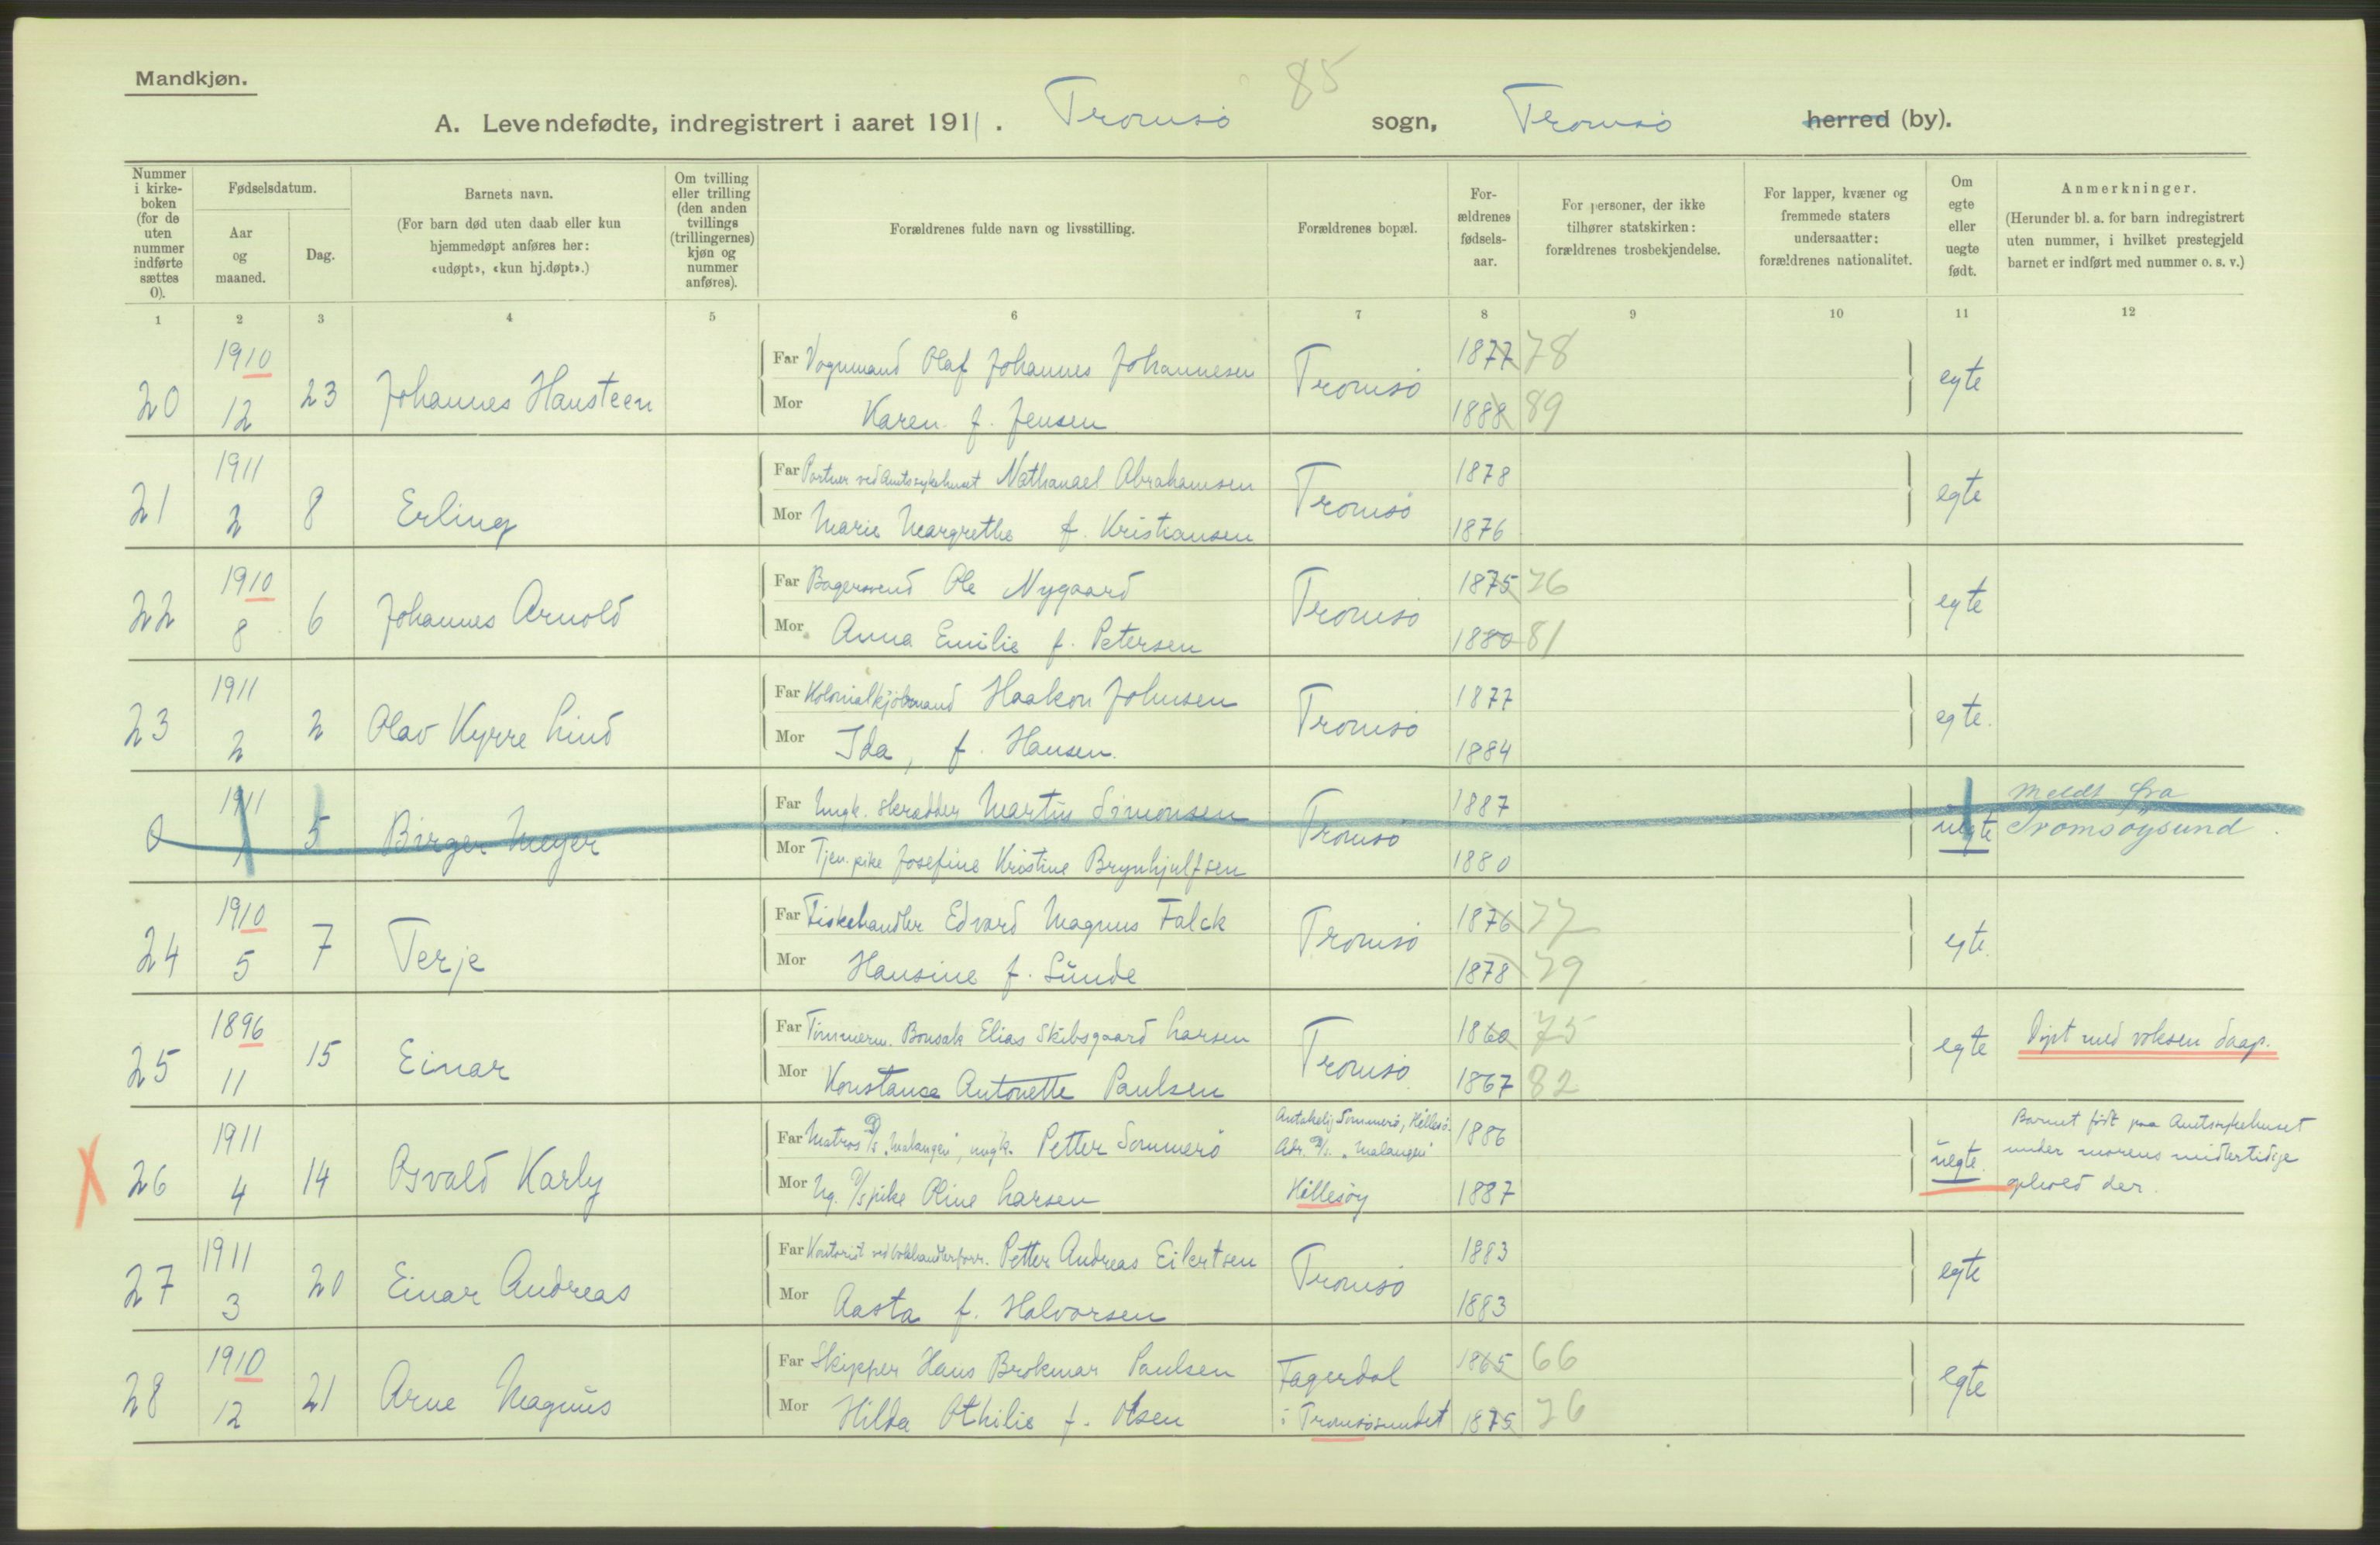 Mandkjøn.
85
A. Levendefødte, indregistrert i aaret 1911. Tromsø sogn, Tromsø herred (by).
Nummer i kirke-boken (for de uten nummer indførte sættes 0).
Fødselsdatum.
Aar og maaned.
Dag.
Barnets navn.
(For barn død uten daab eller kun hjemmedøpt anføres her: «udøpt», «kun hj.døpt».)
Om tvilling eller trilling (den anden tvillings (trillingernes) kjøn og nummer anføres).
Forældrenes fulde navn og livsstilling.
Forældrenes bopæl.
For-ældrenes fødsels-aar.
For personer, der ikke tilhører statskirken: forældrenes trosbekjendelse.
For lapper, kvæner og fremmede staters undersaatter: forældrenes nationalitet.
Om egte eller uegte født.
Anmerkninger.
(Herunder bl. a. for barn indregistrert uten nummer, i hvilket prestegjeld barnet er indført med nummer o. s. v.)
1 2 3 4 5 6 7 8 9 10 11 12
20 1910 12 23 Johannes Hansteen
Far Vognmand Olaf Johannes Johannesen Tromsø 1877 78 egte
Mor Karen f. Jensen 1888 89
21 1911 2 8 Erling
Far Portner ved Amtssykehuset Nathanael Abrahamsen Tromsø 1878 egte
Mor Marie Margrethe f. Kristiansen 1876
22 1910 8 6 Johannes Arnold
Far Bagersvend Ole Nygaard Tromsø 1875 76 egte
Mor Anna Emilie f. Petersen 1880 81
23 1911 2 2 Olav Kyrre Lind
Far Kolonialkjøbmand Haakon Johnsen Tromsø 1877 egte.
Mor Ida, f. Hansen. 1884
0 1911 1 5 Birger Meyer
Far Ungk. skrædder Martin Simonsen Tromsø 1887 uegte Meldt fra Tromsøysund
Mor Tjen. pike Josefine Kristine Brynhjulfsen 1880
24 1910 5 7 Terje
Far Fiskehandler Edvard Magnus Falck Tromsø 1876 77 egte.
Mor Hansine f. Sunde 1878 79
25 1896 11 15 Einar
Far Tømmerm. Bonsak Elias Skibsgaard Larsen Tromsø 1860 75 egte Døpt med voksen daap.
Mor Konstance Antonette Paulsen 1867 82
X 26 1911 4 14 Osvald Karly
Far Matros D/S "Malangen", ungk. Petter Sommerø Sommerø, Hillesø. Adr. D/S. "Malangen" 1886 uegte. Barnet født paa Amtssykehuset under morens midlertidige ophold der.
Mor Ug. pike Oline Larsen Hillesøy 1887
27 1911 3 20 Einar Andreas
Far Kontorist ved Petter Andreas Eilertsen Tromsø 1883 egte
Mor Aasta f. Halvorsen 1883
28 1910 12 21 Arne Magnus
Far Skipper Hans Brokmar Paulsen Fagerdal 1865 66 egte
Mor Hilda Othilie f. Olsen i Tromsøsundet 1875 76